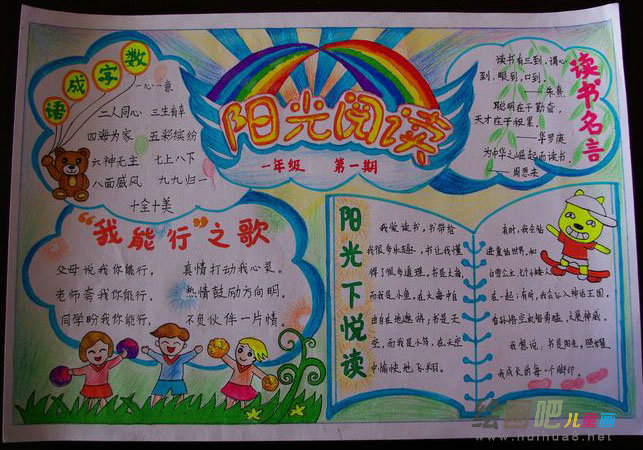 数字成语
一心一意
二人同心 三生有幸
四海为家 五彩缤纷
六神无主 七上八下
八面威风 九九归一
十全十美
阳光阅读
一年级 第一期
读书名言
读书有三到,谓心
到,眼到,口到。
——朱熹
聪明在于勤奋,
天才在于积累。
——华罗庚
为中华之崛起而读书。
——周恩来
“我能行”之歌
父母说我你能行, 真情打动我心灵。
老师夸我你能行, 热情鼓励方向明。
同学盼我你能行, 不负伙伴一片情。
阳光下悦读
我爱读书,书带给
我很多乐趣,书让我懂
得了很多道理。书是大海
而我是小鱼,在大海中自
由自在地遨游;书是天
空,而我是小鸟,在天空
中愉快地飞翔。
有时,我会钻
进童话世界,和
白雪公主七个小矮人
在一起;有时,我会钻入神话王国,
看孙悟空机智勇猛,大展神威。
我想说,书是阳光,照耀
我成长的每一个脚印。
绘画吧儿童画
www.huihua8.net